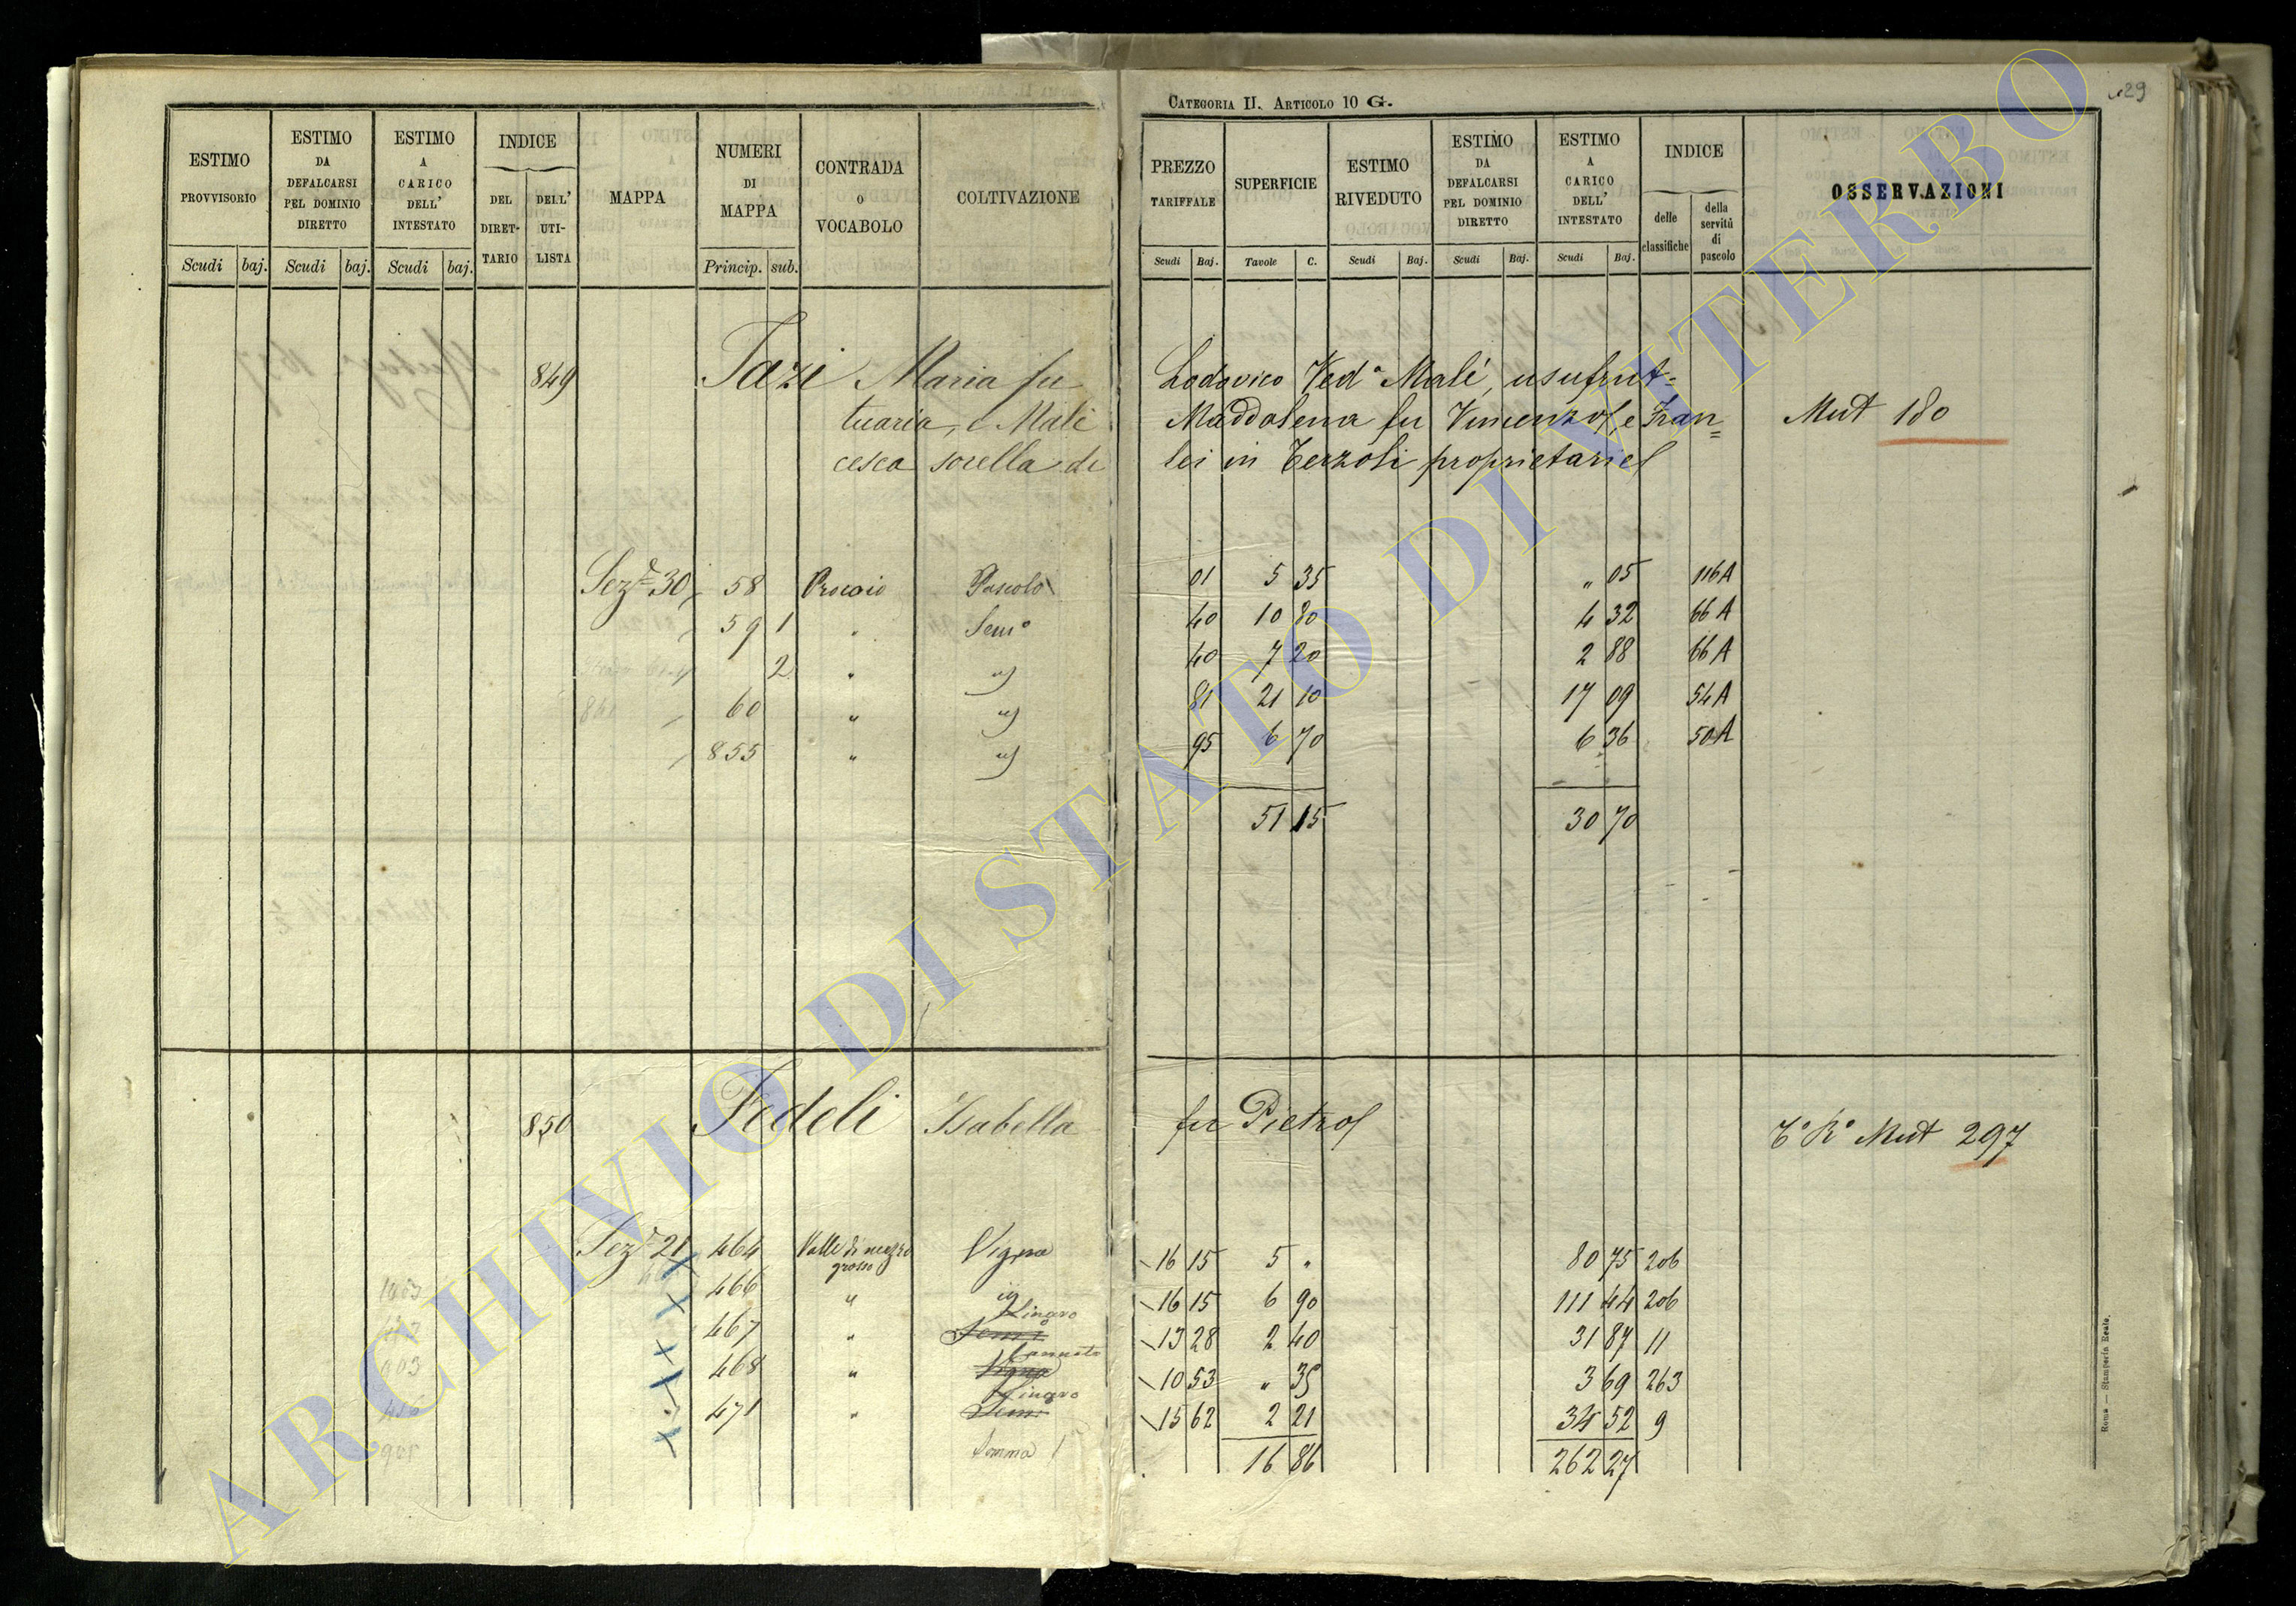 Categoria II. Articolo 10 G.
29
ESTIMO PROVVISORIO | ESTIMO DA DEFALCARSI PEL DOMINIO DIRETTO | ESTIMO A CARICO DELL' INTESTATO | INDICE DEL DIRETTARIO | DELL' UTILISTA | MAPPA | NUMERI DI MAPPA | CONTRADA O VOCABOLO | COLTIVAZIONE | PREZZO TARIFFALE | SUPERFICIE | ESTIMO RIVEDUTO | ESTIMO DA DEFALCARSI PEL DOMINIO DIRETTO | ESTIMO A CARICO DELL' INTESTATO | INDICE delle classifiche | della servitù di pascolo | OSSERVAZIONI
Scudi | baj. | Scudi | baj. | Scudi | baj. | Princip. | sub. | Scudi | Baj. | Tavole | C. | Scudi | Baj. | Scudi | Baj. | Scudi | Baj.
849 Fazi Maria fu Lodovico Ved.a Malé, usufrut=
tuaria, e Malé Maddalena fu Vincenzo, e Fran= Mut 180
cesca sorella di lei in Terzoli proprietarie
Sez.e 30 58 Procoio Pascolo 01 5 35 " 05 116A
59 1 " Sem.o 40 10 80 4 32 66 A
2 " " 40 7 20 2 88 66 A
60 " " 81 21 10 17 09 54 A
855 " " 95 6 70 6 36 50 A
51 15 30 70
850 Fedeli Isabella fu Pietro T.o R.o Mut 297
Sez.e 21 464 Valle di mezzo grosso Vigna 16 15 5 " 80 75 206
466 " id 16 15 6 90 111 44 206
467 " 13 28 2 40 31 87 11
468 " Canneto 10 53 " 35 3 69 263
471 " 15 62 2 21 34 52 9
Somma 16 86 262 27
Roma — Stamperia Reale.
ARCHIVIO DI STATO DI VITERBO